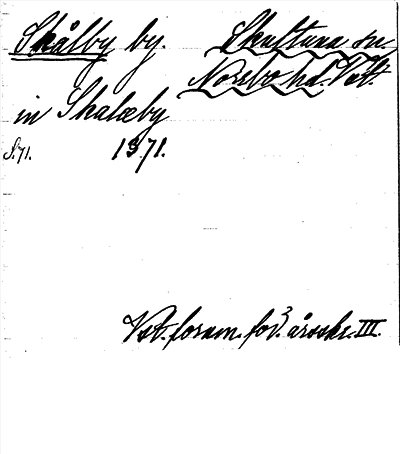 Skålby by. Skultuna sn.
Norrbo hd. Vstm.
in Skalæby
S.71. 1371.
Vst. fornm. för. årsskr. III.